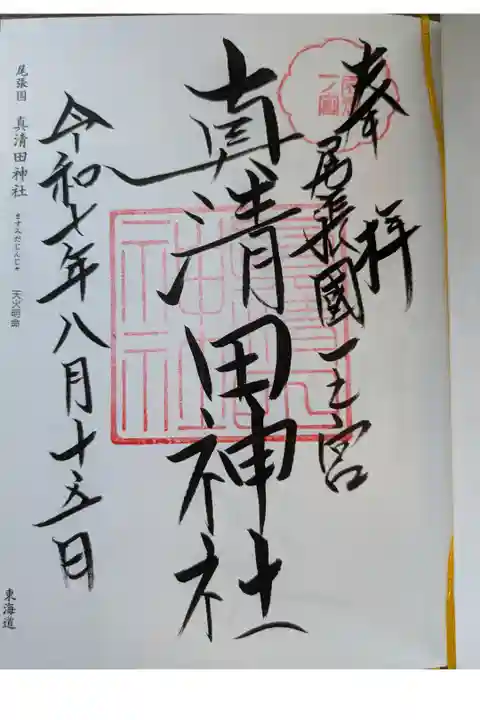 奉拝
尾張國一之宮
真清田神社
令和七年八月十五日
尾張国 真清田神社 ますみだじんじゃ 天火明命
東海道